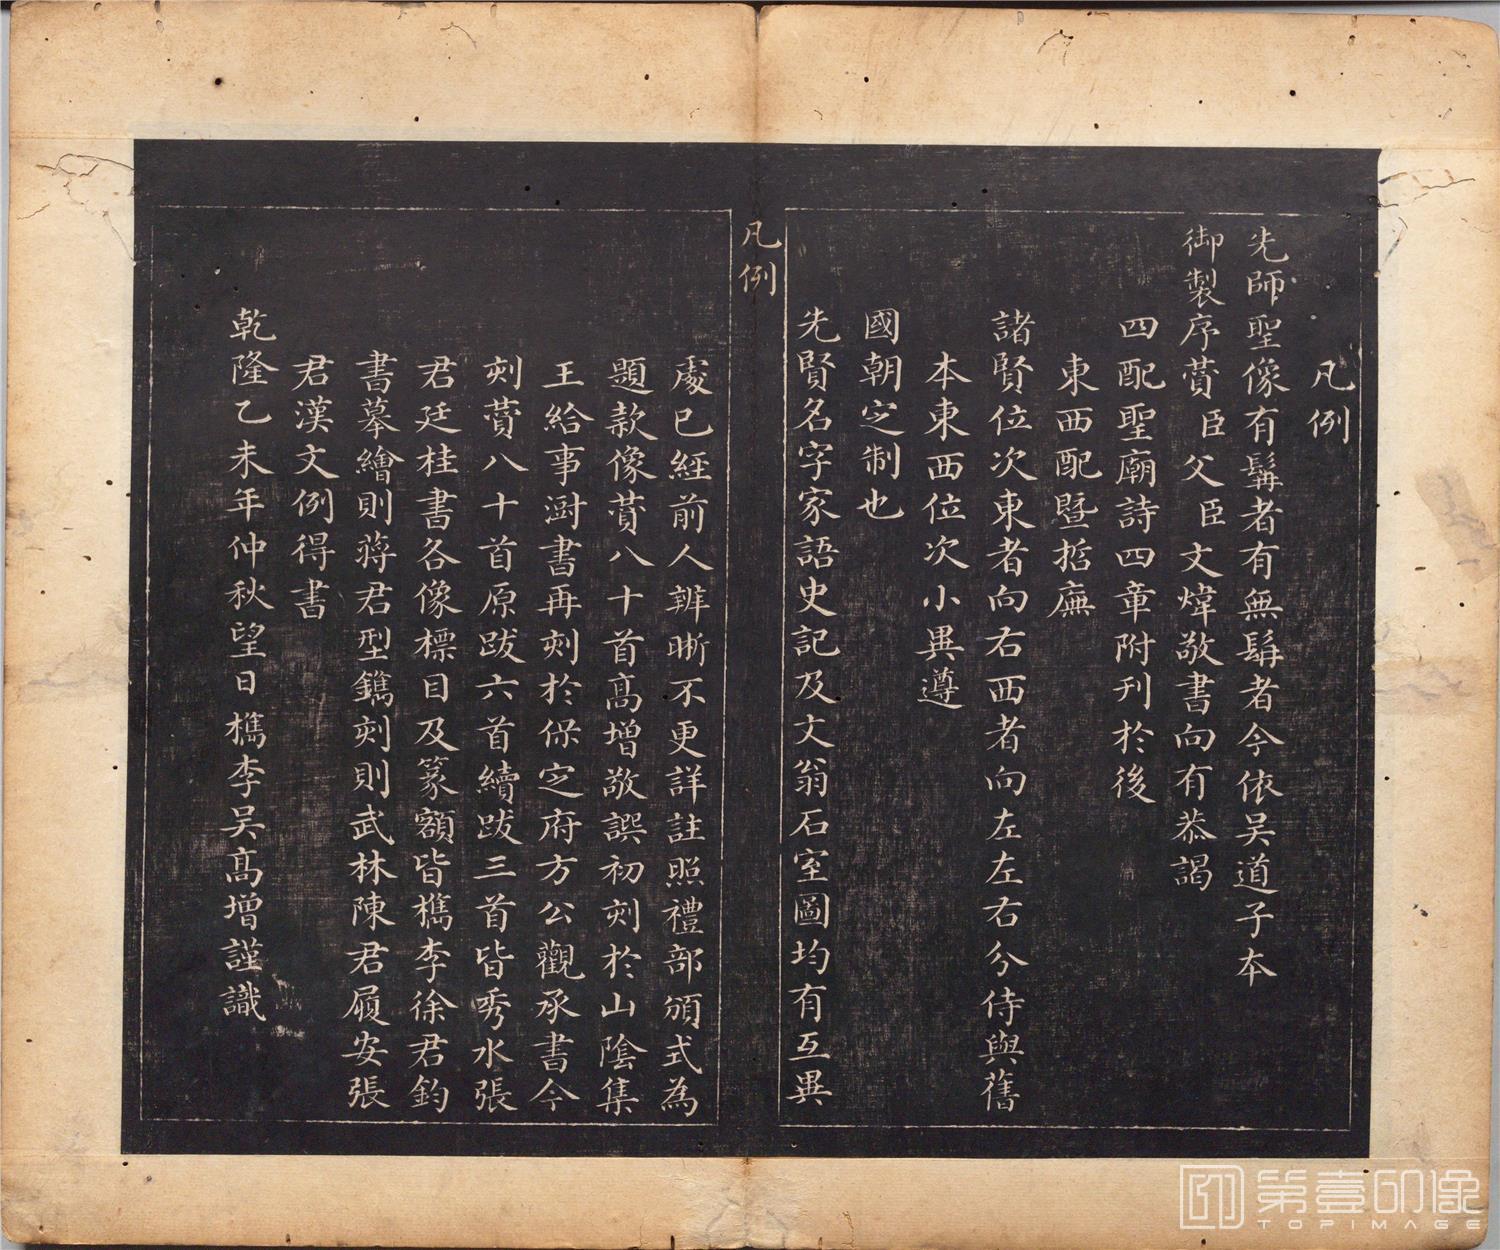 凡例
先師聖像有鬚者有無鬚者今依吳道子本
御製序贊臣父臣文煒敬書向有恭謁
四配聖廟詩四章附刊於後
東西配暨哲廡
諸賢位次東者向右西者向左左右分侍與舊
本東西位次小異遵
國朝定制也
先賢名字家語史記及文翁石室圖均有互異
凡例
處已經前人辨晰不更詳註照禮部頒式為
題款像贊八十首高增敬譔初刻於山陰集
王給事澍書再刻於保定府方公觀承書今
刻贊八十首原跋六首續跋三首皆秀水張
君廷桂書各像標目及篆額皆檇李徐君鈞
書摹繪則蔣君型鐫刻則武林陳君履安張
君漢文例得書
乾隆乙未年仲秋望日檇李吳高增謹識
第壹印像
TOPIMAGE